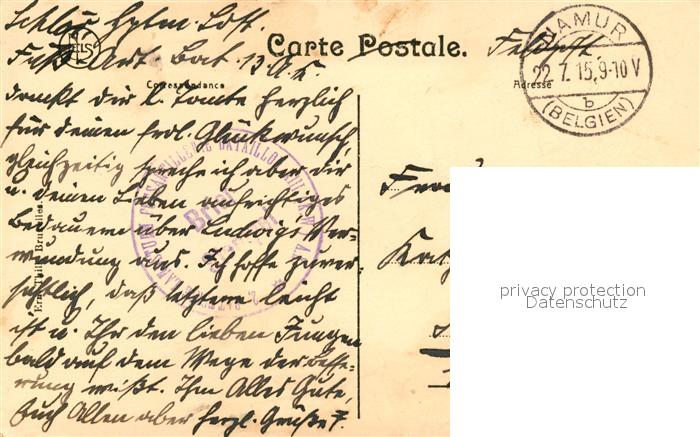 Carte Postale.
Feldpost.
NAMUR
22.7.15.9-10 V
b
(BELGIEN)
Correspondance
Adresse
Fuß Art. Bat.
dankt dir l. Tante herzlich
für deinen frdl. Glückwunsch,
gleichzeitig spreche ich aber dir
u. deinen Lieben aufrichtiges
Bedauern über Ludwig's Ver-
wundung aus. Ich hoffe zuver-
sichtlich, daß letztere leicht
ist u. Ihr den lieben Jungen
bald auf dem Wege der Besse-
rung wißt. Ihm Alles Gute,
Euch Allen aber herzl. Grüße F.
Brief
BATAILLON
Ern. Thill, Bruxelles
privacy protection
Datenschutz